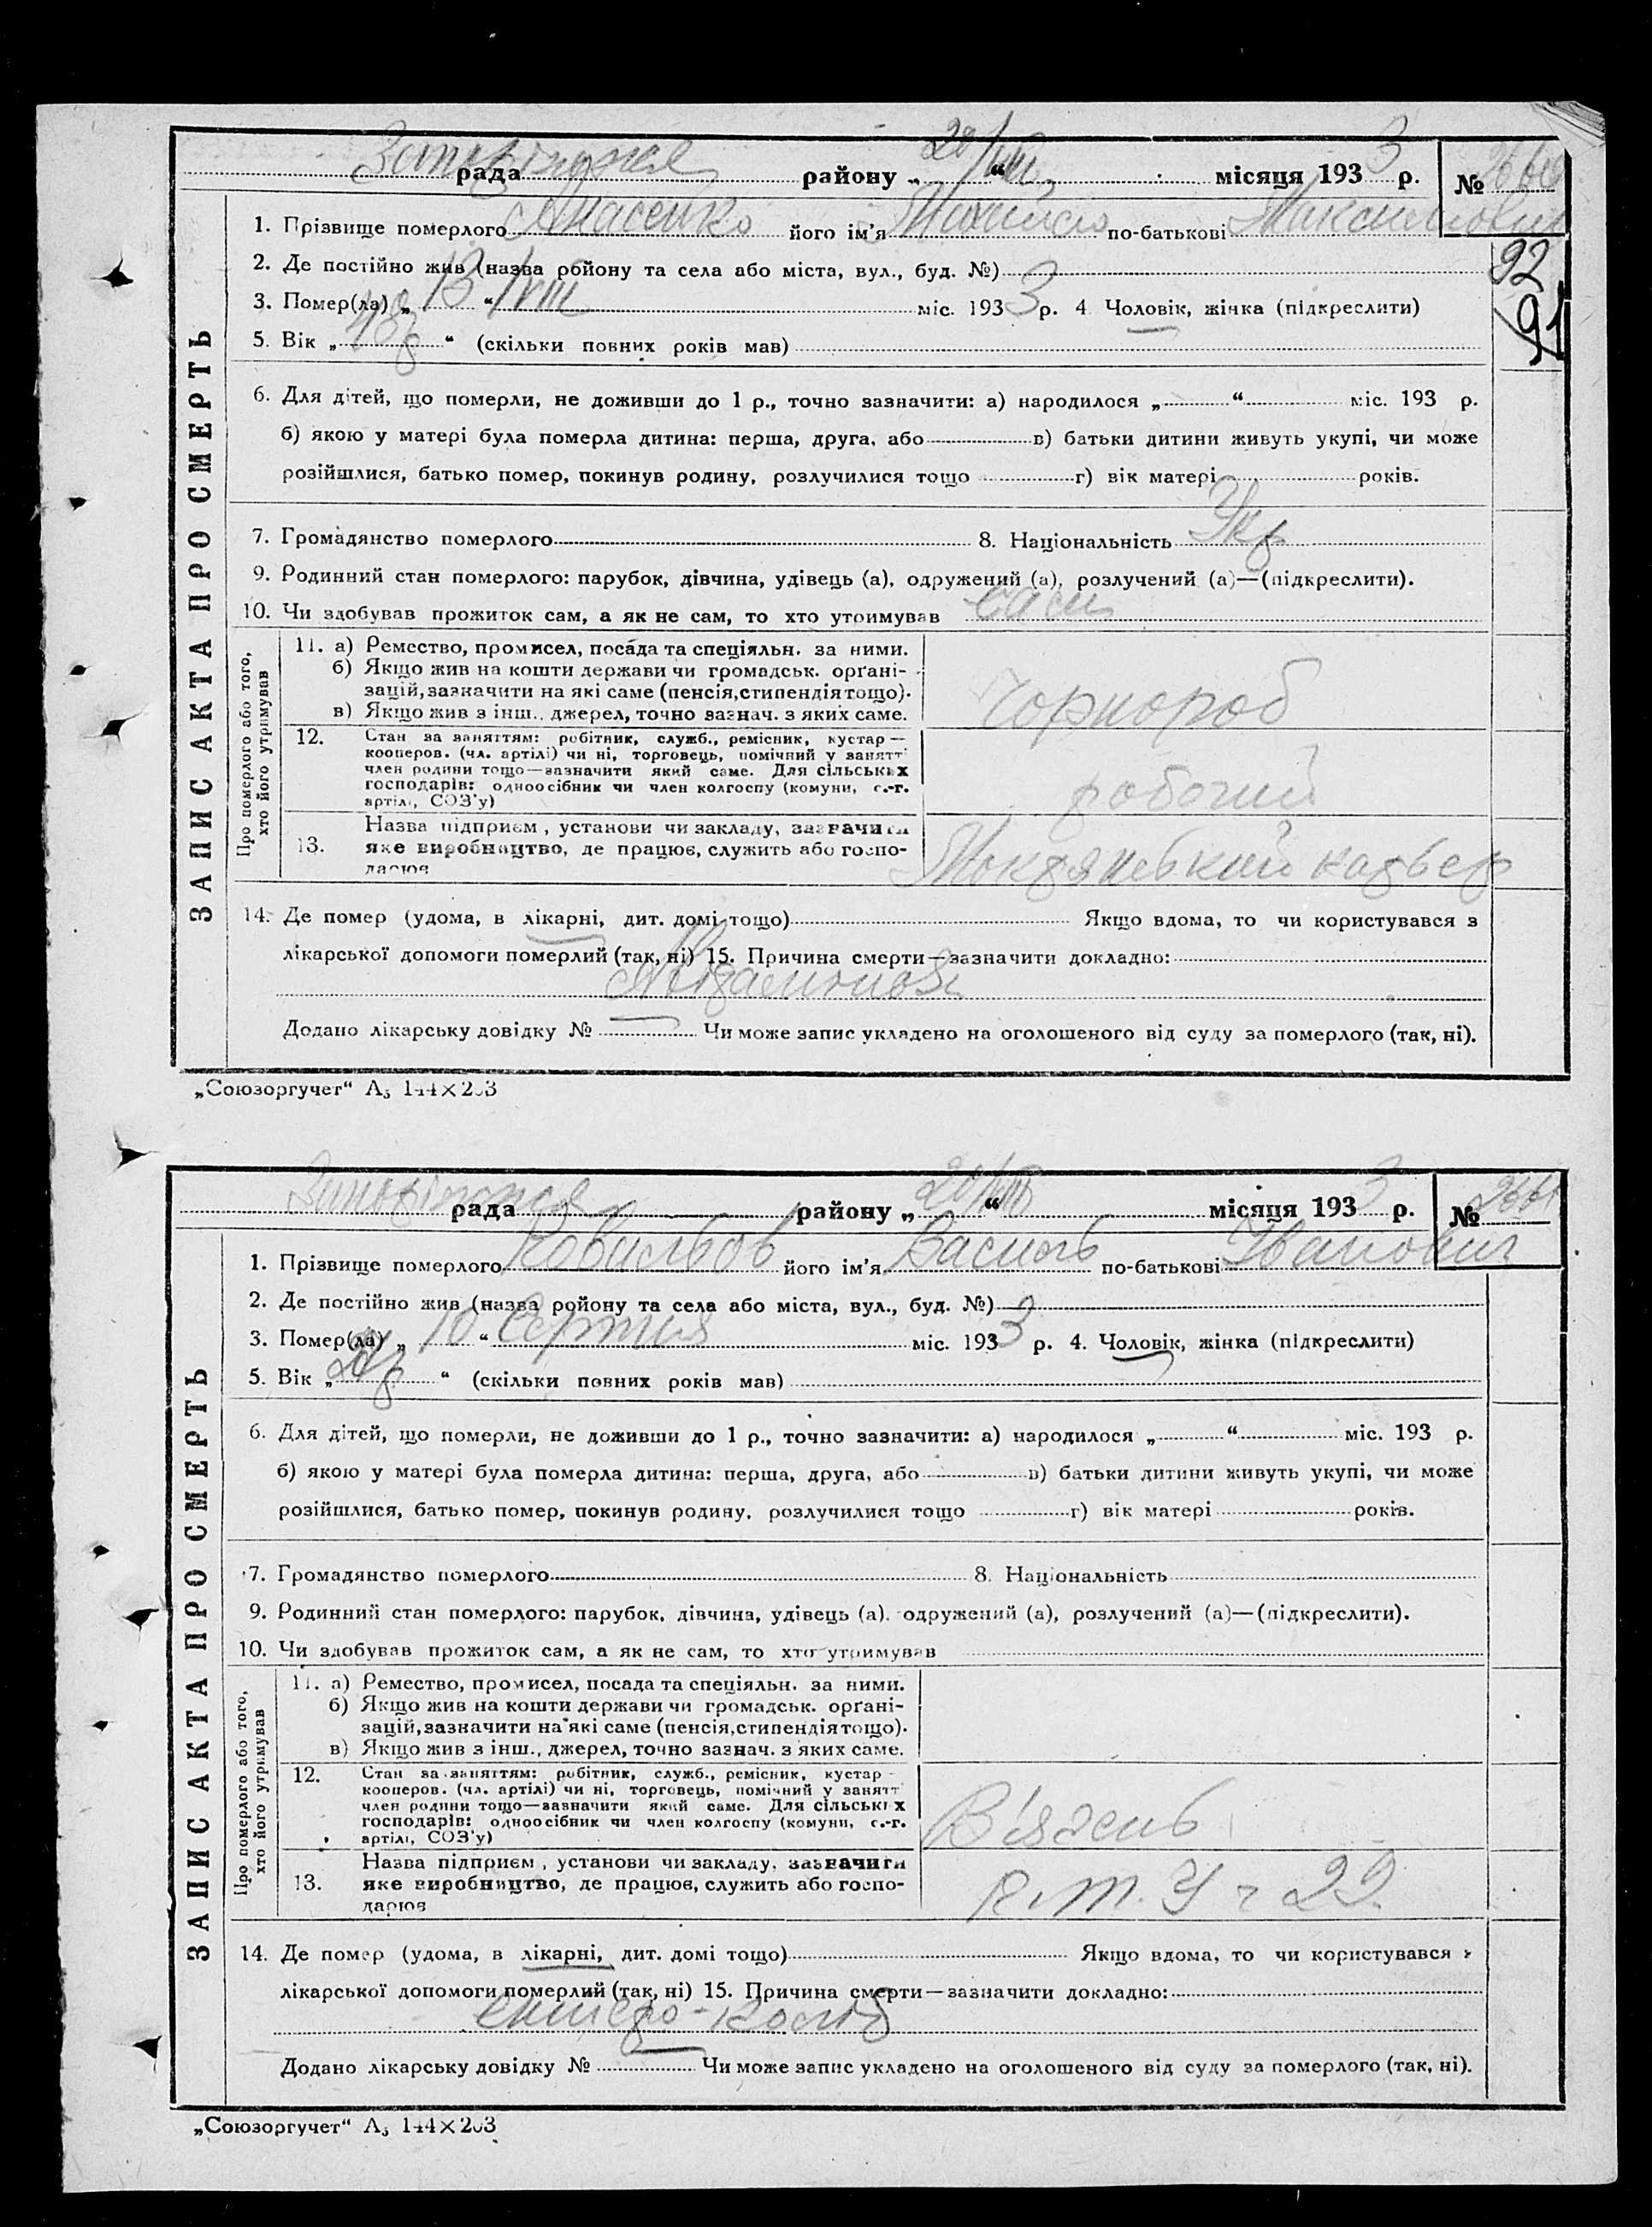 рада району „ 20/VIII “ місяця 1933 р. №
1. Прізвище померлого його ім'я по-батькові Максимович
92
2. Де постійно жив (назва ройону та села або міста, вул., буд. №)
3. Помер(ла) „ 13 “ VIII міс. 1933 р. 4 Чоловік, жінка (підкреслити)
91
5. Вік „ “ (скільки повних років мав)
6. Для дітей, що померли, не доживши до 1 р., точно зазначити: а) народилося „ “ міс. 193 р.
б) якою у матері була померла дитина: перша, друга, або в) батьки дитини живуть укупі, чи може
розійшлися, батько помер, покинув родину, розлучилися тощо г) вік матері років.
7. Громадянство померлого 8. Національність Укр
9. Родинний стан померлого: парубок, дівчина, удівець (а), одружений (а), розлучений (а)—(підкреслити).
10. Чи здобував прожиток сам, а як не сам, то хто утримував сам
ЗАПИС АКТА ПРО СМЕРТЬ
Про померлого або того,
хто його утримував
11. а) Ремество, промисел, посада та спеціяльн. за ними.
б) Якщо жив на кошти держави чи громадськ. орґані-
зацій, зазначити на які саме (пенсія, стипендія тощо).
в) Якщо жив з інш., джерел, точно зазнач. з яких саме.
Чорнороб
12. Стан за заняттям: робітник, служб., ремісник, кустар —
кооперов. (чл. артілі) чи ні, торговець, помічний у занятт
член родини тощо—зазначити який саме. Для сільських
господарів: одноосібник чи член колгоспу (комуни, с.-г.
артілі, СОЗ'у)
робочий
13. Назва підприєм, установи чи закладу, зазначити
яке виробництво, де працює, служить або госпо-
дарює
Мокрянський карьер
14. Де помер (удома, в лікарні, дит. домі тощо) Якщо вдома, то чи користувався з
лікарської допомоги померлий (так, ні) 15. Причина смерти—зазначити докладно:
Додано лікарську довідку № Чи може запис укладено на оголошеного від суду за померлого (так, ні).
„Союзоргучет“ А₅ 144×203
рада району „ 20/VIII “ місяця 1933 р. № 2661
1. Прізвище померлого його ім'я Василь по-батькові Іванович
2. Де постійно жив (назва ройону та села або міста, вул., буд. №)
3. Помер(ла) „ 10 “ Серпня міс. 1933 р. 4. Чоловік, жінка (підкреслити)
5. Вік „ “ (скільки повних років мав)
6. Для дітей, що померли, не доживши до 1 р., точно зазначити: а) народилося „ “ міс. 193 р.
б) якою у матері була померла дитина: перша, друга, або в) батьки дитини живуть укупі, чи може
розійшлися, батько помер, покинув родину, розлучилися тощо г) вік матері років.
7. Громадянство померлого 8. Національність
9. Родинний стан померлого: парубок, дівчина, удівець (а), одружений (а), розлучений (а)—(підкреслити).
10. Чи здобував прожиток сам, а як не сам, то хто утримував
ЗАПИС АКТА ПРО СМЕРТЬ
Про померлого або того,
хто його утримував
11. а) Ремество, промисел, посада та спеціяльн. за ними.
б) Якщо жив на кошти держави чи громадськ. орґані-
зацій, зазначити на які саме (пенсія, стипендія тощо).
в) Якщо жив з інш., джерел, точно зазнач. з яких саме.
12. Стан за заняттям: робітник, служб., ремісник, кустар
кооперов. (чл. артілі) чи ні, торговець, помічний у занятт
член родини тощо—зазначити який саме. Для сільських
господарів: одноосібник чи член колгоспу (комуни, с.-г.
артілі, СОЗ'у)
В'язень
13. Назва підприєм, установи чи закладу, зазначити
яке виробництво, де працює, служить або госпо-
дарює
14. Де помер (удома, в лікарні, дит. домі тощо) Якщо вдома, то чи користувався з
лікарської допомоги померлий (так, ні) 15. Причина смерти—зазначити докладно:
ентеро-коліт
Додано лікарську довідку № Чи може запис укладено на оголошеного від суду за померлого (так, ні).
„Союзоргучет“ А₅ 144×203